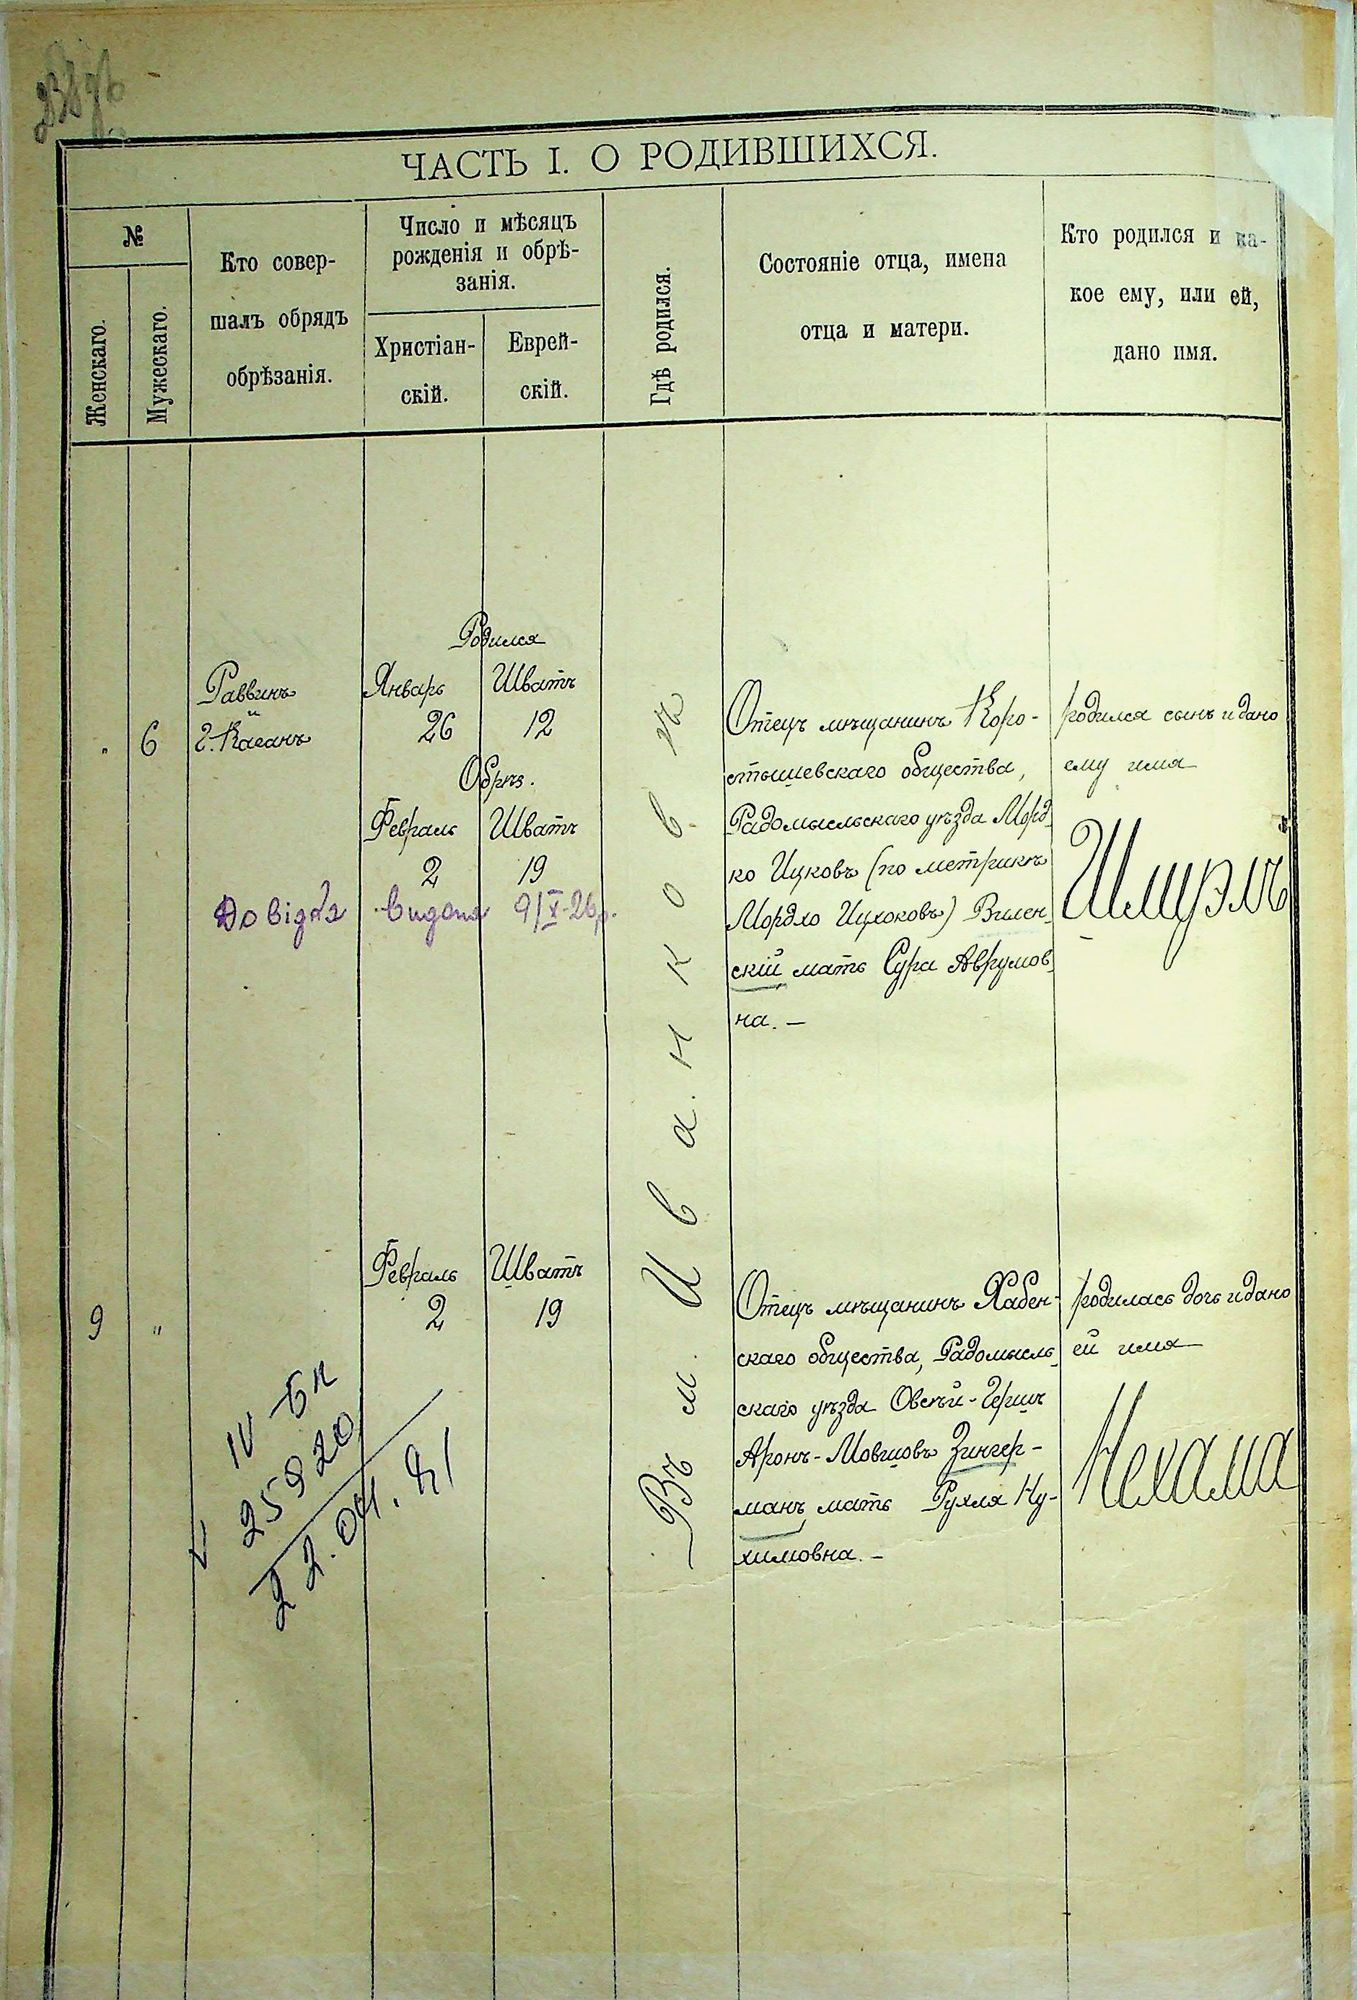 ЧАСТЬ I. О РОДИВШИХСЯ.
№
Женскаго.
Мужескаго.
Кто совер-
шалъ обрядъ
обрѣзанія.
Число и мѣсяцъ
рожденія и обрѣ-
занія.
Христіан-
скій.
Еврей-
скій.
Гдѣ родился.
Состояніе отца, имена
отца и матери.
Кто родился и ка-
кое ему, или ей,
дано имя.
" 6
Раввинъ
Г. Каганъ
Родился
Январь Шватъ
26 12
Обрѣз.
Февраль Шватъ
2 19
Довідка видана 9/X-26р.
Въ м. Иванковѣ
Отецъ мѣщанинъ Коро-
стышевскаго общества,
Радомысльскаго уѣзда Морд-
ко Ицковъ (по метрикѣ
Мордхо Ицхоковъ) Вилен-
скій мать Сура Аврумов-
на. —
родился сынъ и дано
ему имя
Шмуэлъ
9 "
Февраль Шватъ
2 19
Отецъ мѣщанинъ Хабен-
скаго общества, Радомысль-
скаго уѣзда Овсѣй-Гершъ
Аронъ-Мовшовъ Зингер-
манъ, мать Рухля Ну-
химовна. —
родилась дочь и дано
ей имя
Нехама
25920
22.04.